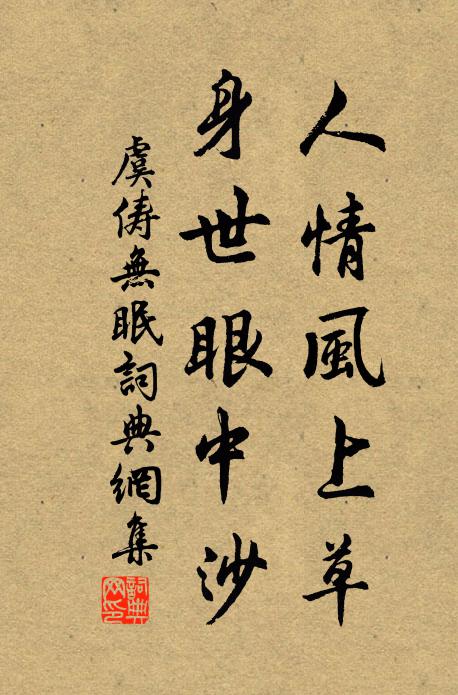 人情風上草
身世眼中沙
虞儔無眠詞典網集
詞典
网印